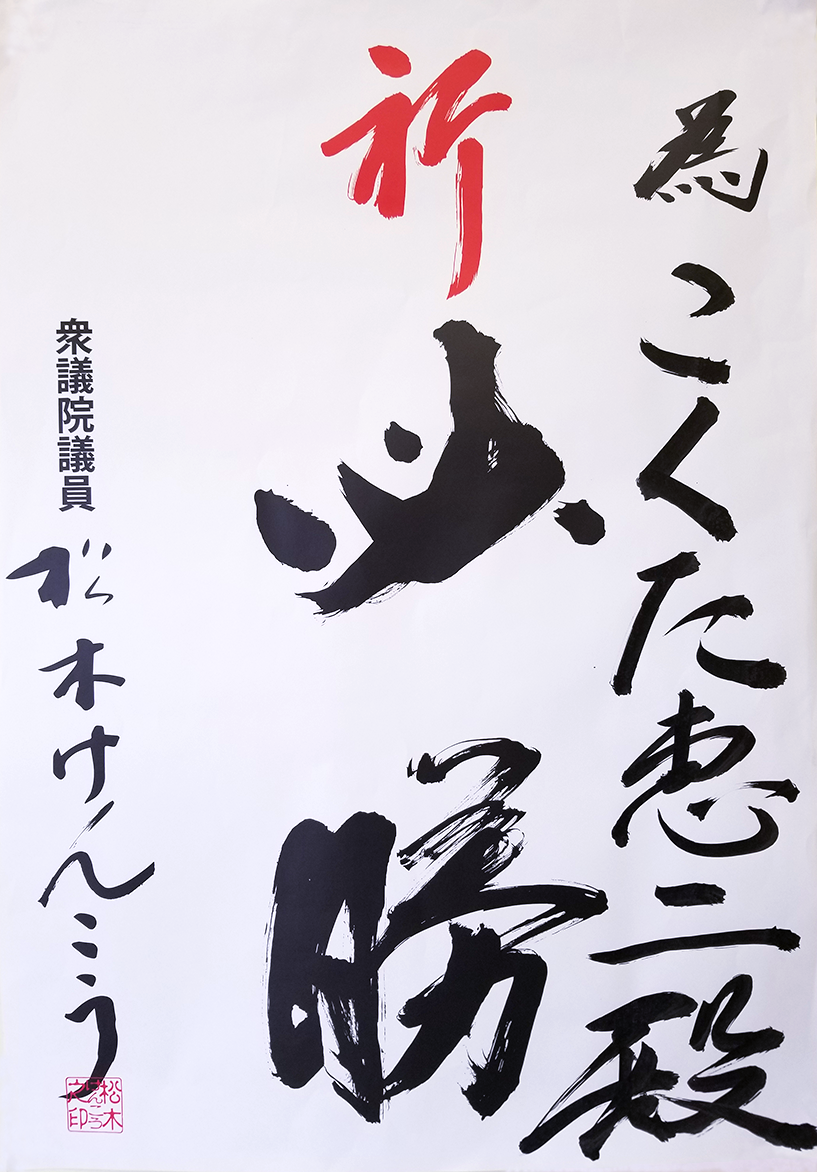 為こくた恵二殿
祈必勝
衆議院議員 松木けんこう
松木
けんこう
之印